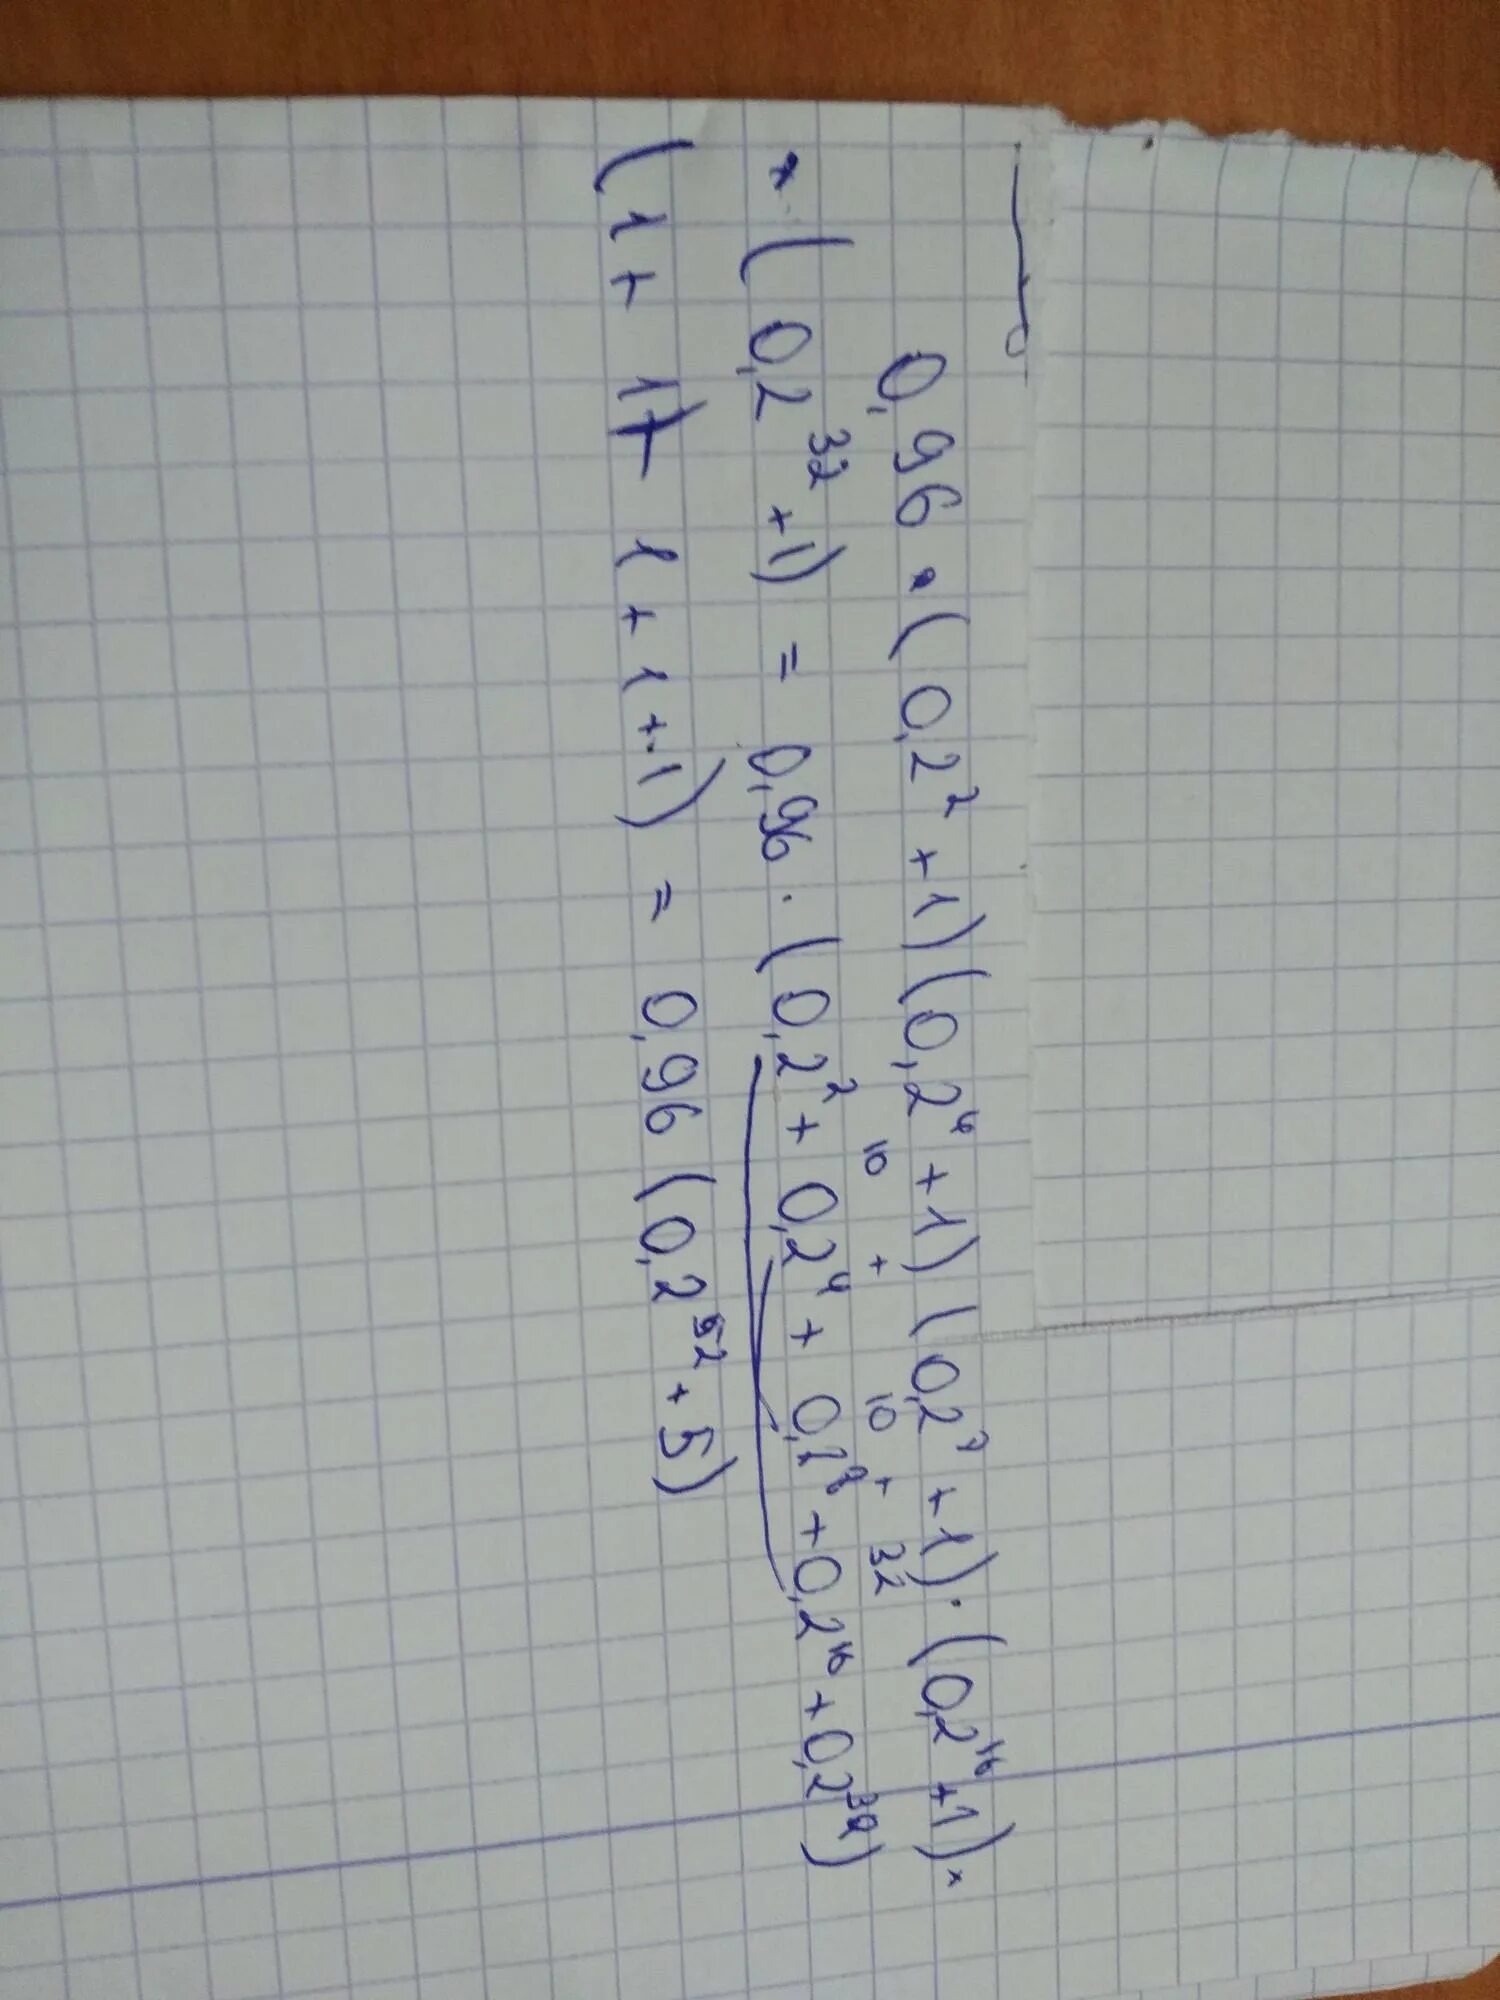 0,96 · (0,2² + 1) (0,2⁴ + 1) (0,2⁸ + 1) · (0,2¹⁶ + 1) ×
10 + 10 + 32
× (0,2³² + 1) = 0,96 · (0,2² + 0,2⁴ + 0,2⁸ + 0,2¹⁶ + 0,2³²)
(1 + 1) + 1 + 1 + 1) = 0,96 (0,2⁵² + 5)